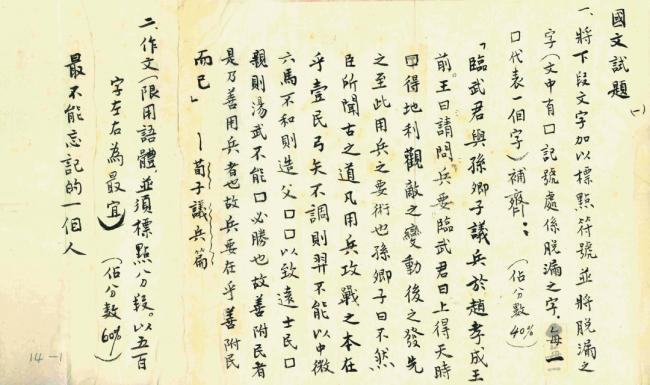 國文試題(一)
一、將下段文字加以標點符號並將脫漏之
字(文中有口記號處係脫漏之字,每一
口代表一個字)補齊:(佔分數40%)
「臨武君與孫卿子議兵於趙孝成王
前。王曰請問兵要臨武君曰上得天時
口得地利觀敵之變動後之發先
之至此用兵之要術也孫卿子曰不然
臣所聞古之道凡用兵攻戰之本在
乎壹民弓矢不調則羿不能以中微
六馬不和則造父口口以致遠士民口
親則湯武不能口必勝也故善附民者
是乃善用兵者也故兵要在乎善附民
而已」—荀子議兵篇
二、作文(限用語體,並須標點八分段。以五百
字左右為最宜)(佔分數60%)
最不能忘記的一個人
14-1